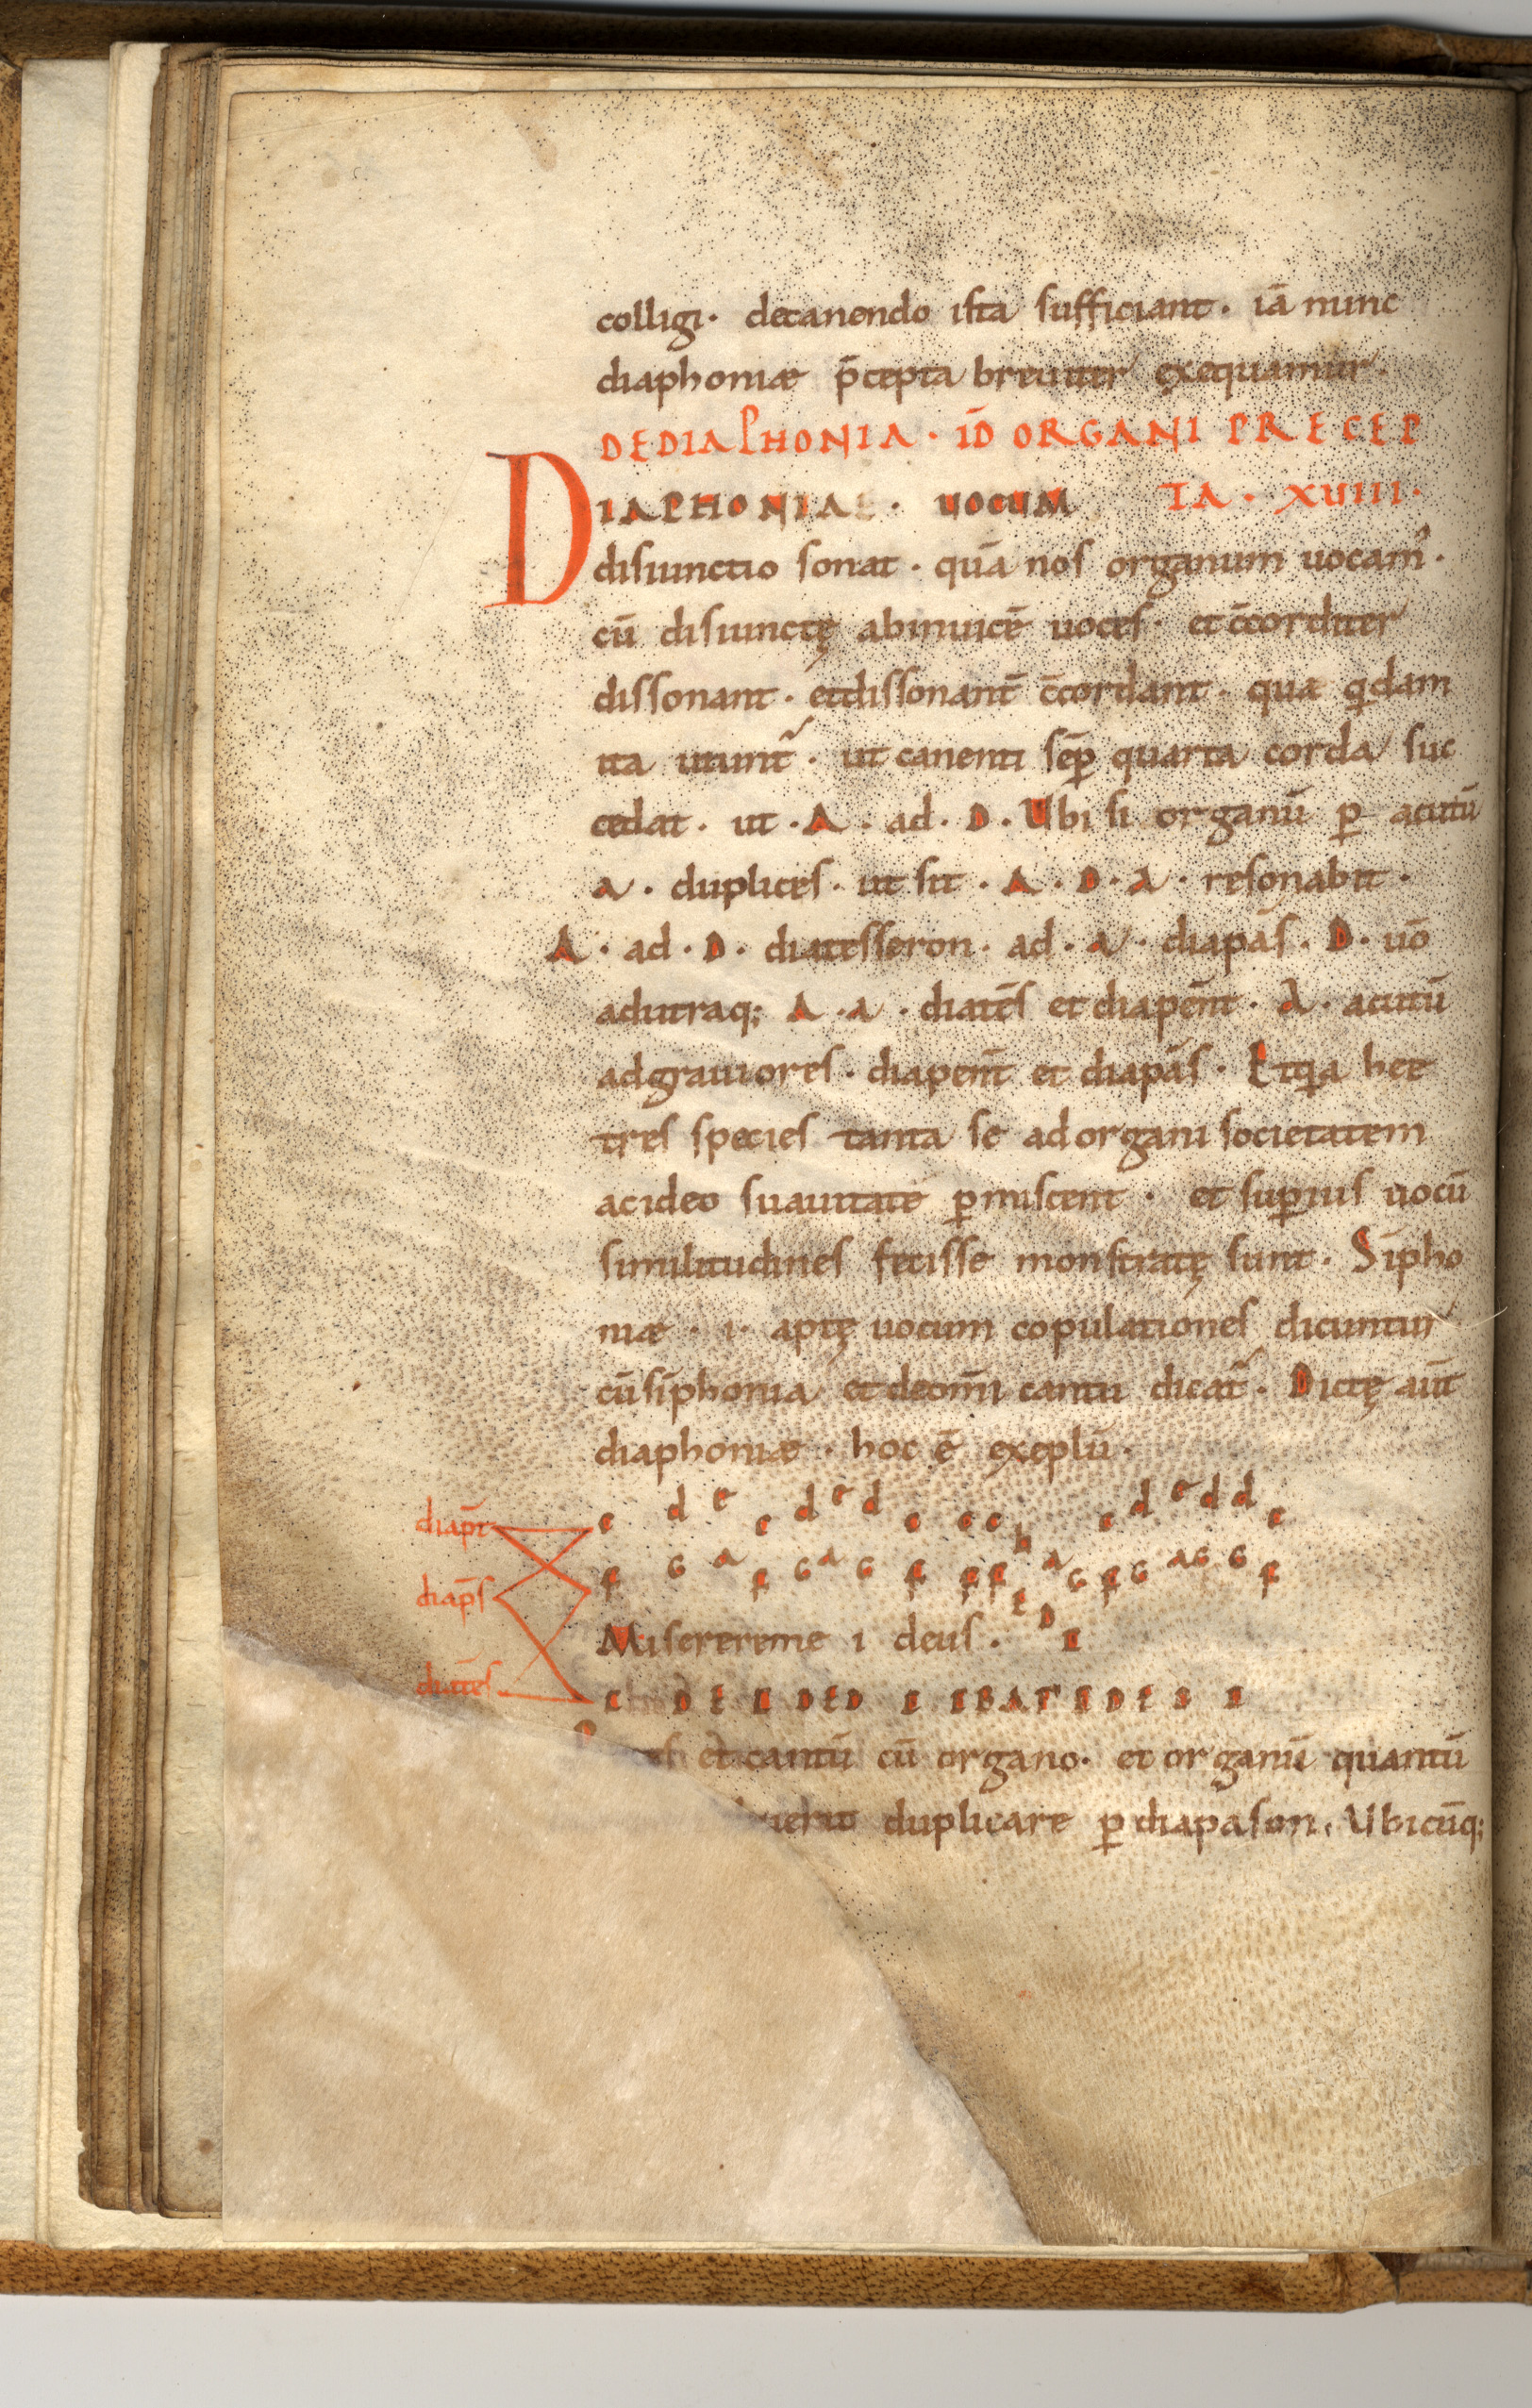 colligi· decanendo ista sufficiant· iā nunc
diaphoniæ p̄cepta breuiter exequamur·
DEDIAPHONIA· ID̄ ORGANI PRECEP
DIAPHONIAE· UOCUM TA· XUIIII·
disiunctio sonat· quā nos organum uocam᾿·
cū disiunctę abinuicē uoces· et c̄corditer
dissonant· etdissonant̄ c̄cordant· qua qdam
ita utunt᷑· ut canenti sēp quarta corda suc
cedat· ut ·A· ad· D· Ubi si organū ꝑ acutū
a· duplices· ut sit ·A·D·a· resonabit·
A· ad· D· diatesseron· ad· a· diapās· D· uō
adutraq; A·a· diatēs et diapēnt· a· acutū
adgrauiores· diapent̄ et diapās· Etqa hee
tres species tanta se adorgani societatem
acideo suauitate ꝑmiscent· et suꝑius uocū
similitudines fecisse monstratę sunt· Sīpho
niæ· i· aptę uocum copulationes dicuntur
cū sīphonia et deom̄i cantu dicat᷑· Dictę aūt
diaphoniæ· hoc ē exēplū·
diap̄t c d e c d e d c c c b c d e d d c
diap̄s F G a F G a G F F F E D a G F G a G G F
Miserereme i deus· C
diatēs C D E C D E D C C B A Γ C D E D C
et cantū cū organo· et organū quantū
duplicare ꝑ diapason· Ubicūq;